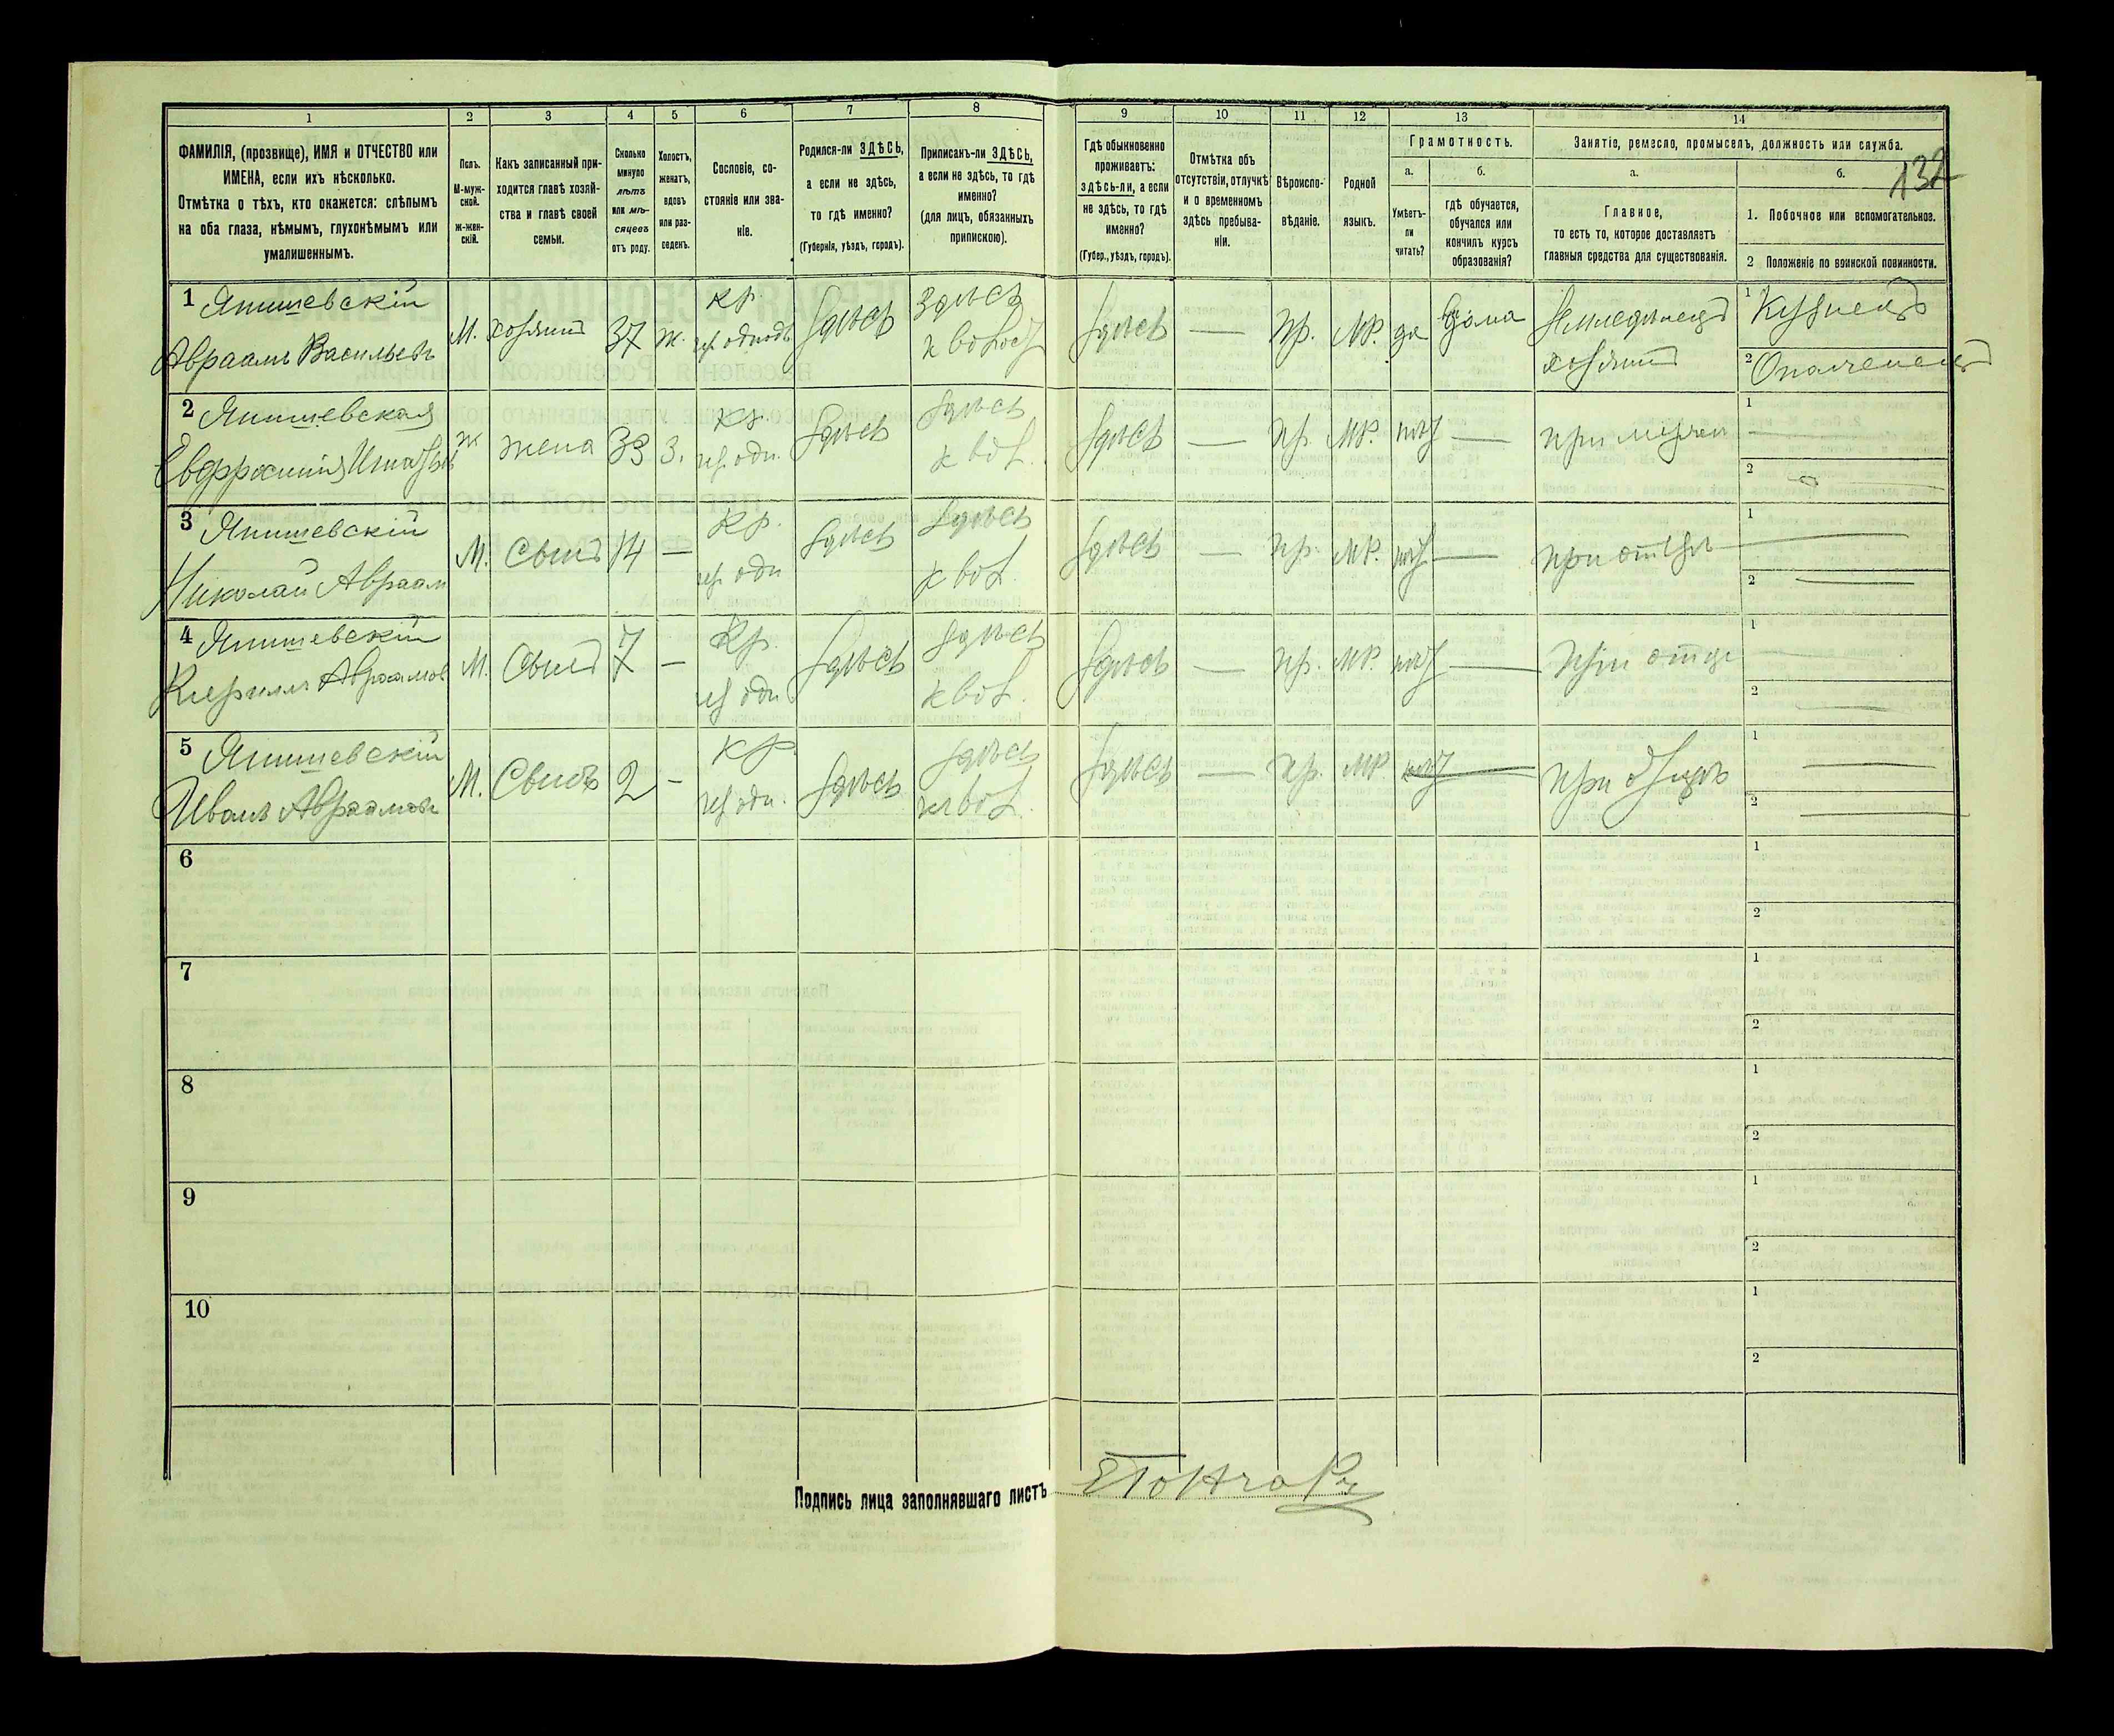 1 2 3 4 5 6 7 8 9 10 11 12 13 14
ФАМИЛІЯ, (прозвище), ИМЯ и ОТЧЕСТВО или
ИМЕНА, если ихъ нѣсколько.
Отмѣтка о тѣхъ, кто окажется: слѣпымъ
на оба глаза, нѣмымъ, глухонѣмымъ или
умалишеннымъ.
Полъ.
М-муж-
ской.
ж-жен-
скій.
Какъ записанный при-
ходится главѣ хозяй-
ства и главѣ своей
семьи.
Сколько
минуло
лѣтъ
или мѣ-
сяцевъ
отъ роду.
Холостъ,
женатъ,
вдовъ
или раз-
веденъ.
Сословіе, со-
стояніе или зва-
ніе.
Родился-ли ЗДѢСЬ,
а если не здѣсь,
то гдѣ именно?
(Губернія, уѣздъ, городъ).
Приписанъ-ли ЗДѢСЬ,
а если не здѣсь, то гдѣ
именно?
(для лицъ, обязанныхъ
припискою).
Гдѣ обыкновенно
проживаетъ:
здѣсь-ли, а если
не здѣсь, то гдѣ
именно?
(Губер., уѣздъ, городъ).
Отмѣтка объ
отсутствіи, отлучкѣ
и о временномъ
здѣсь пребыва-
ніи.
Вѣроиспо-
вѣданіе.
Родной
языкъ.
Грамотность.
а.
Умѣетъ-
ли
читать?
б.
гдѣ обучается,
обучался или
кончилъ курсъ
образованія?
Занятіе, ремесло, промыселъ, должность или служба.
а.
Главное,
то есть то, которое доставляетъ
главныя средства для существованія.
б.
132
1. Побочное или вспомогательное.
2 Положеніе по воинской повинности.
1 Янишевскій
Авраамъ Васильевъ
М. хозяинъ 37 ж. кр.
здѣсь
здѣсь
здѣсь — пр. мр. да дома
Земледѣлецъ
хозяинъ
1 Кузнецъ
2 Ополченецъ
2 Янишевская
ж жена 33 з. кр.
здѣсь
здѣсь
здѣсь — пр. мр. —
1 —
2 —
3 Янишевскій
Николай Авраам
М. Сынъ 14 — кр.
здѣсь
здѣсь
здѣсь — пр. мр. — при отцѣ
1 —
2 —
4 Янишевскій
Кирилъ Авраамов
М. Сынъ 7 — кр.
здѣсь
здѣсь
здѣсь — пр. мр. — при отцѣ
1 —
2 —
5 Янишевскій
Иванъ Авраамов
М. Сынъ 2 — кр.
здѣсь
здѣсь
здѣсь — пр. мр.
1 —
2 —
6
1
2
7
1
2
8
1
2
9
1
2
10
1
2
Подпись лица заполнявшаго листъ